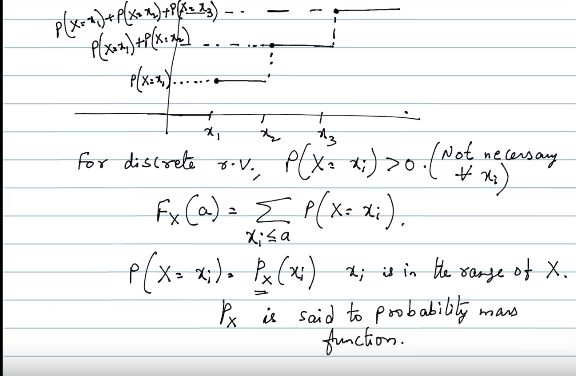 P(X=x₁)+P(X=x₂)+P(X=x₃)
P(X=x₁)+P(X=x₂)
P(X=x₁)
x₁ x₂ x₃
For discrete r.v., P(X=xᵢ)>0. (Not necessary ∀ xᵢ)
F_X(a) = Σ P(X=xᵢ).
xᵢ≤a
P(X=xᵢ) = P_X(xᵢ) xᵢ is in the range of X.
P_X is said to probability mass
function.